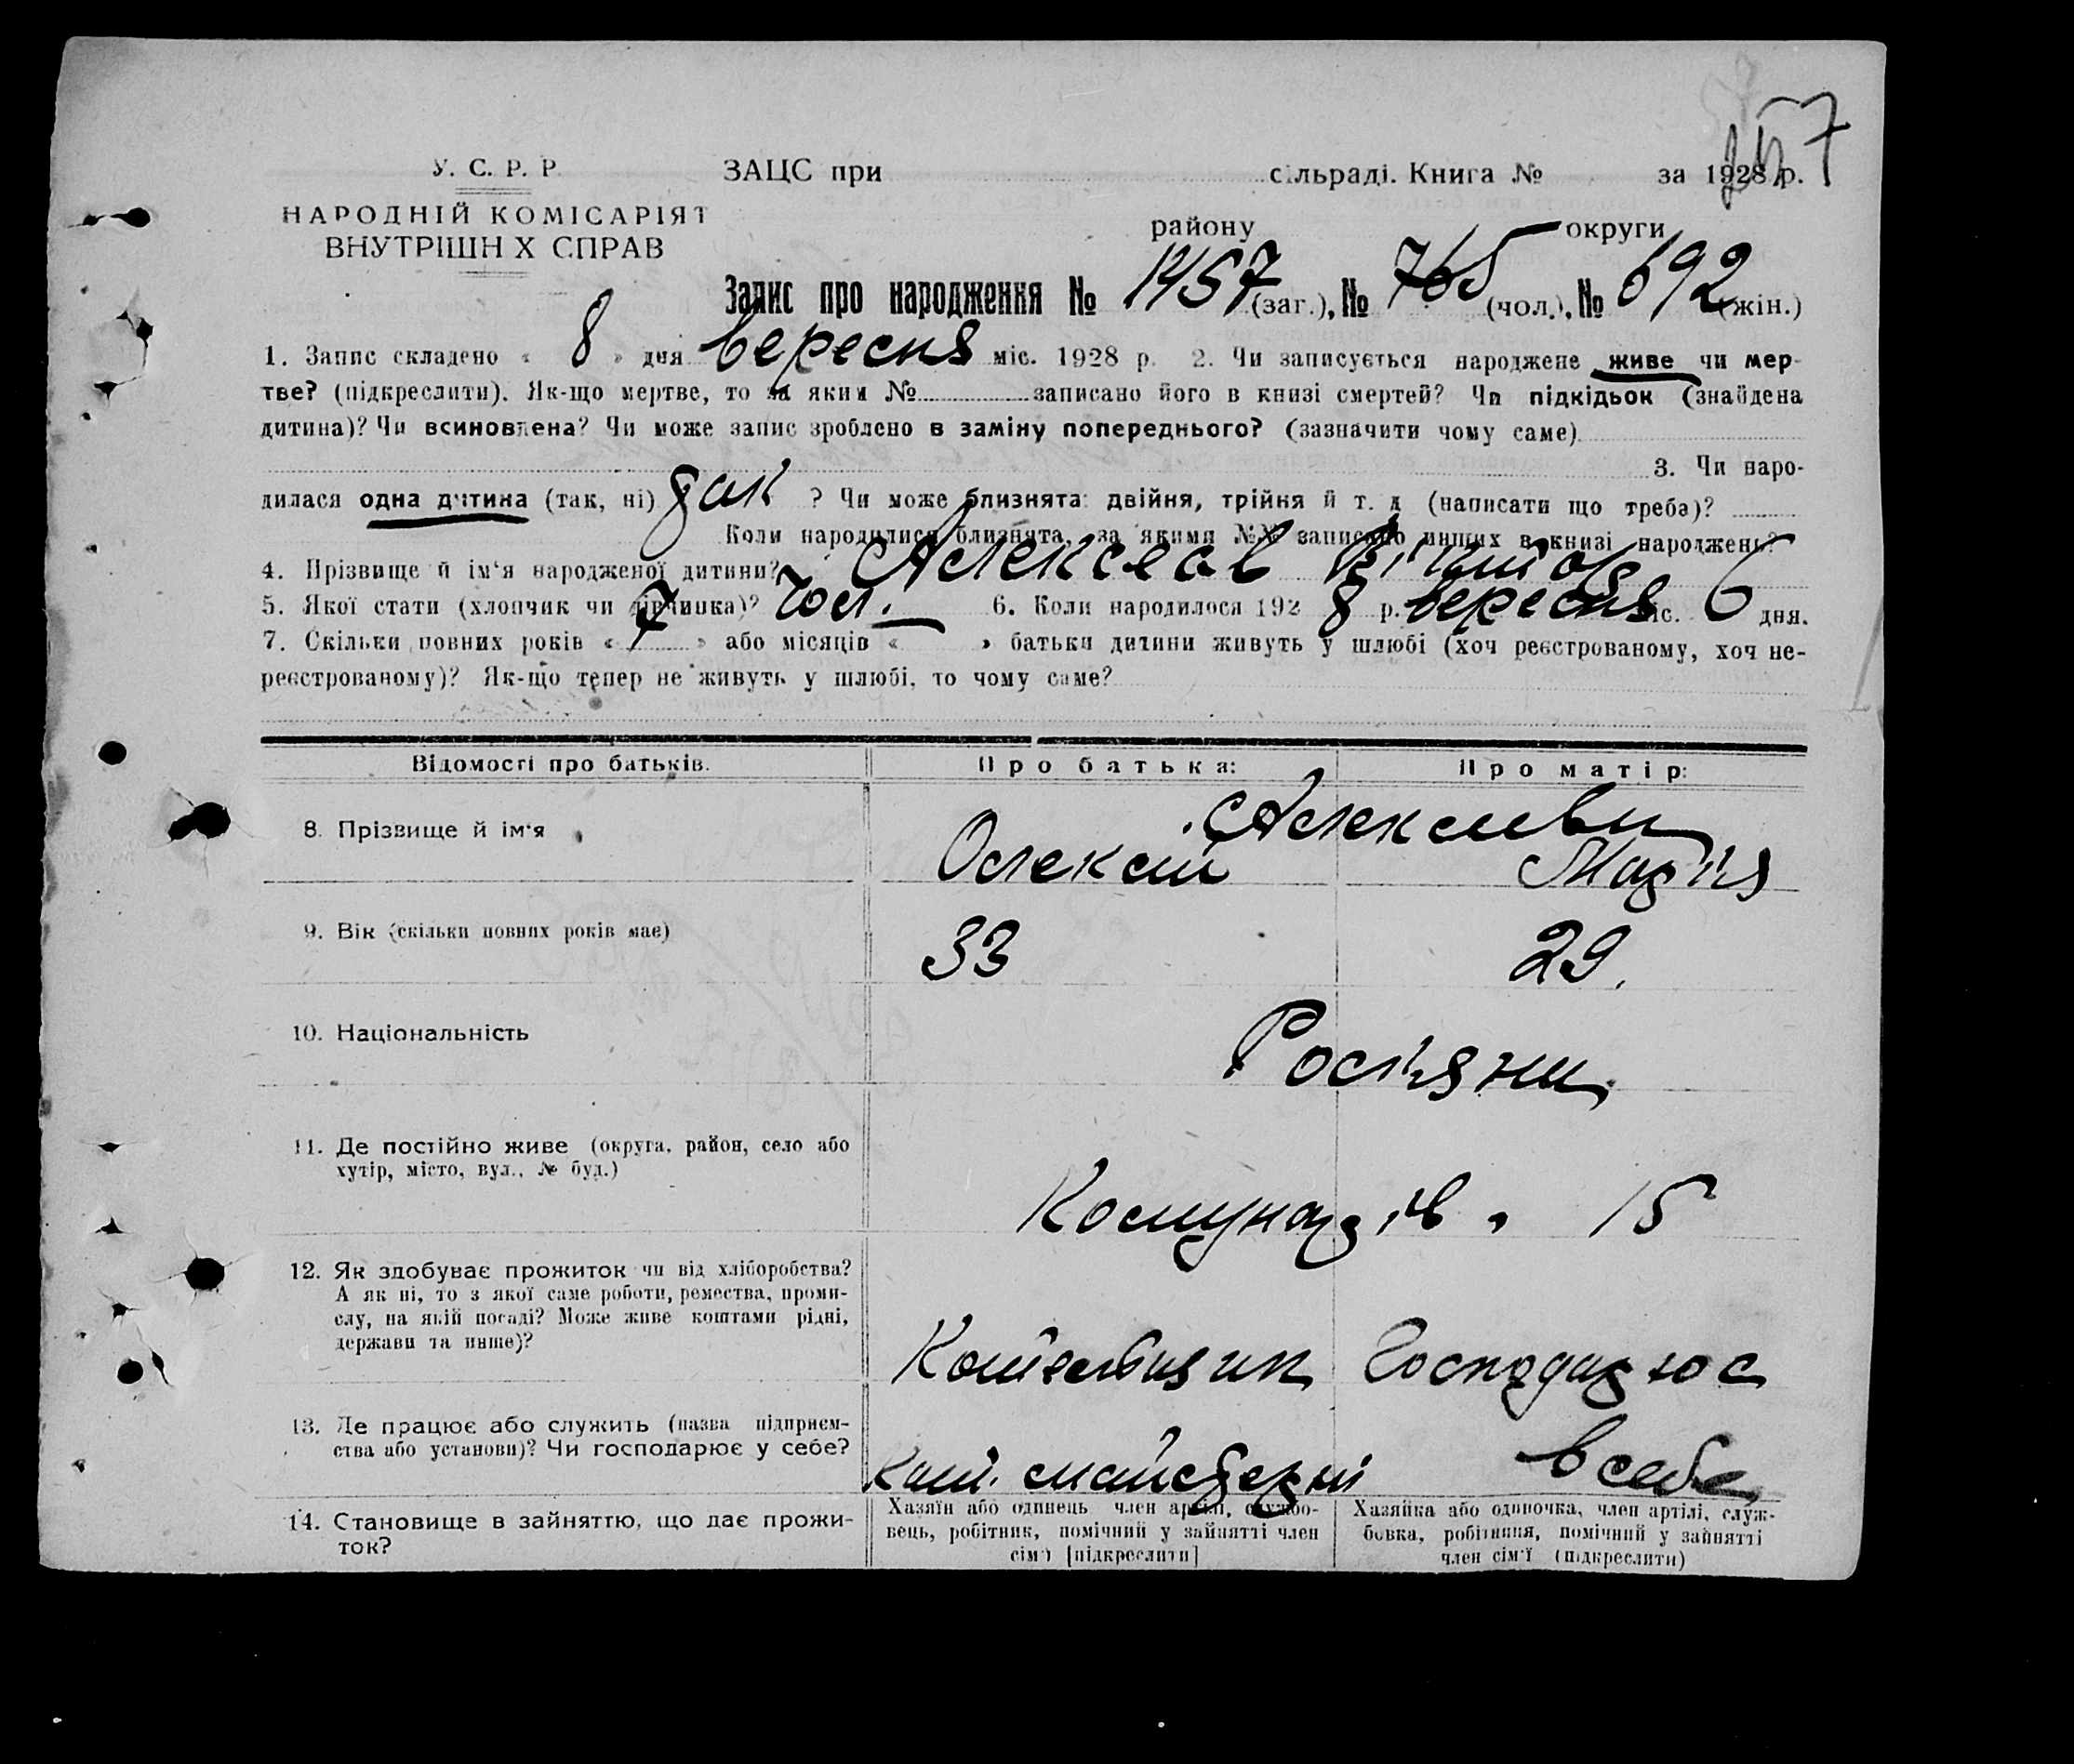 257
У. С. Р. Р.
ЗАЦС при сільраді. Книга № за 1928 р.
НАРОДНІЙ КОМІСАРІЯТ
ВНУТРІШН Х СПРАВ
району округи
Запис про народження № 1457 (заг.), № 765 (чол.), № 692 (жін.)
1. Запис складено « 8 » дня вересня міс. 1928 р. 2. Чи записується народжене живе чи мер-
тве? (підкреслити). Як-що мертве, то за яким № записано його в книзі смертей? Чи підкідьок (знайдена
дитина)? Чи всиновлена? Чи може запис зроблено в заміну попереднього? (зазначити чому саме)
3. Чи наро-
дилася одна дитина (так, ні) так ? Чи може близнята: двійня, трійня й т. д (написати що треба)?
Коли народилися близнята, за якими №№ записано инших в книзі народжень?
4. Прізвище й ім'я народженої дитини? Алексеєв Віктор
5. Якої стати (хлопчик чи дівчинка)? Чол. 6. Коли народилося 192 8 р. вересня міс. 6 дня.
7. Скільки повних років « 7 » або місяців « » батьки дитини живуть у шлюбі (хоч реєстрованому, хоч не-
реєстрованому)? Як-що тепер не живуть у шлюбі, то чому саме?
Відомості про батьків. Про батька: Про матір:
8. Прізвище й ім'я Алексєєви
Олексій Марія
9. Вік (скільки повних років має) 33 29.
10. Національність Росіяни
11. Де постійно живе (округа, район, село або
хутір, місто, вул., № буд.)
Комунарів. 15
12. Як здобуває прожиток чи від хліборобства?
А як ні, то з якої саме роботи, ремества, проми-
слу, на якій посаді? Може живе коштами рідні,
держави та инше)?
Господарює
13. Де працює або служить (назва підприєм-
ства або установи)? Чи господарює у себе?
майстерні в себе
14. Становище в зайняттю, що дає прожи-
ток?
Хазяїн або одинець член артілі, службо-
вець, робітник, помічний у зайнятті член
сім'ї [підкреслити]
Хазяйка або одиночка, член артілі, служ-
бовка, робітниця, помічний у зайнятті
член сім'ї (підкреслити)